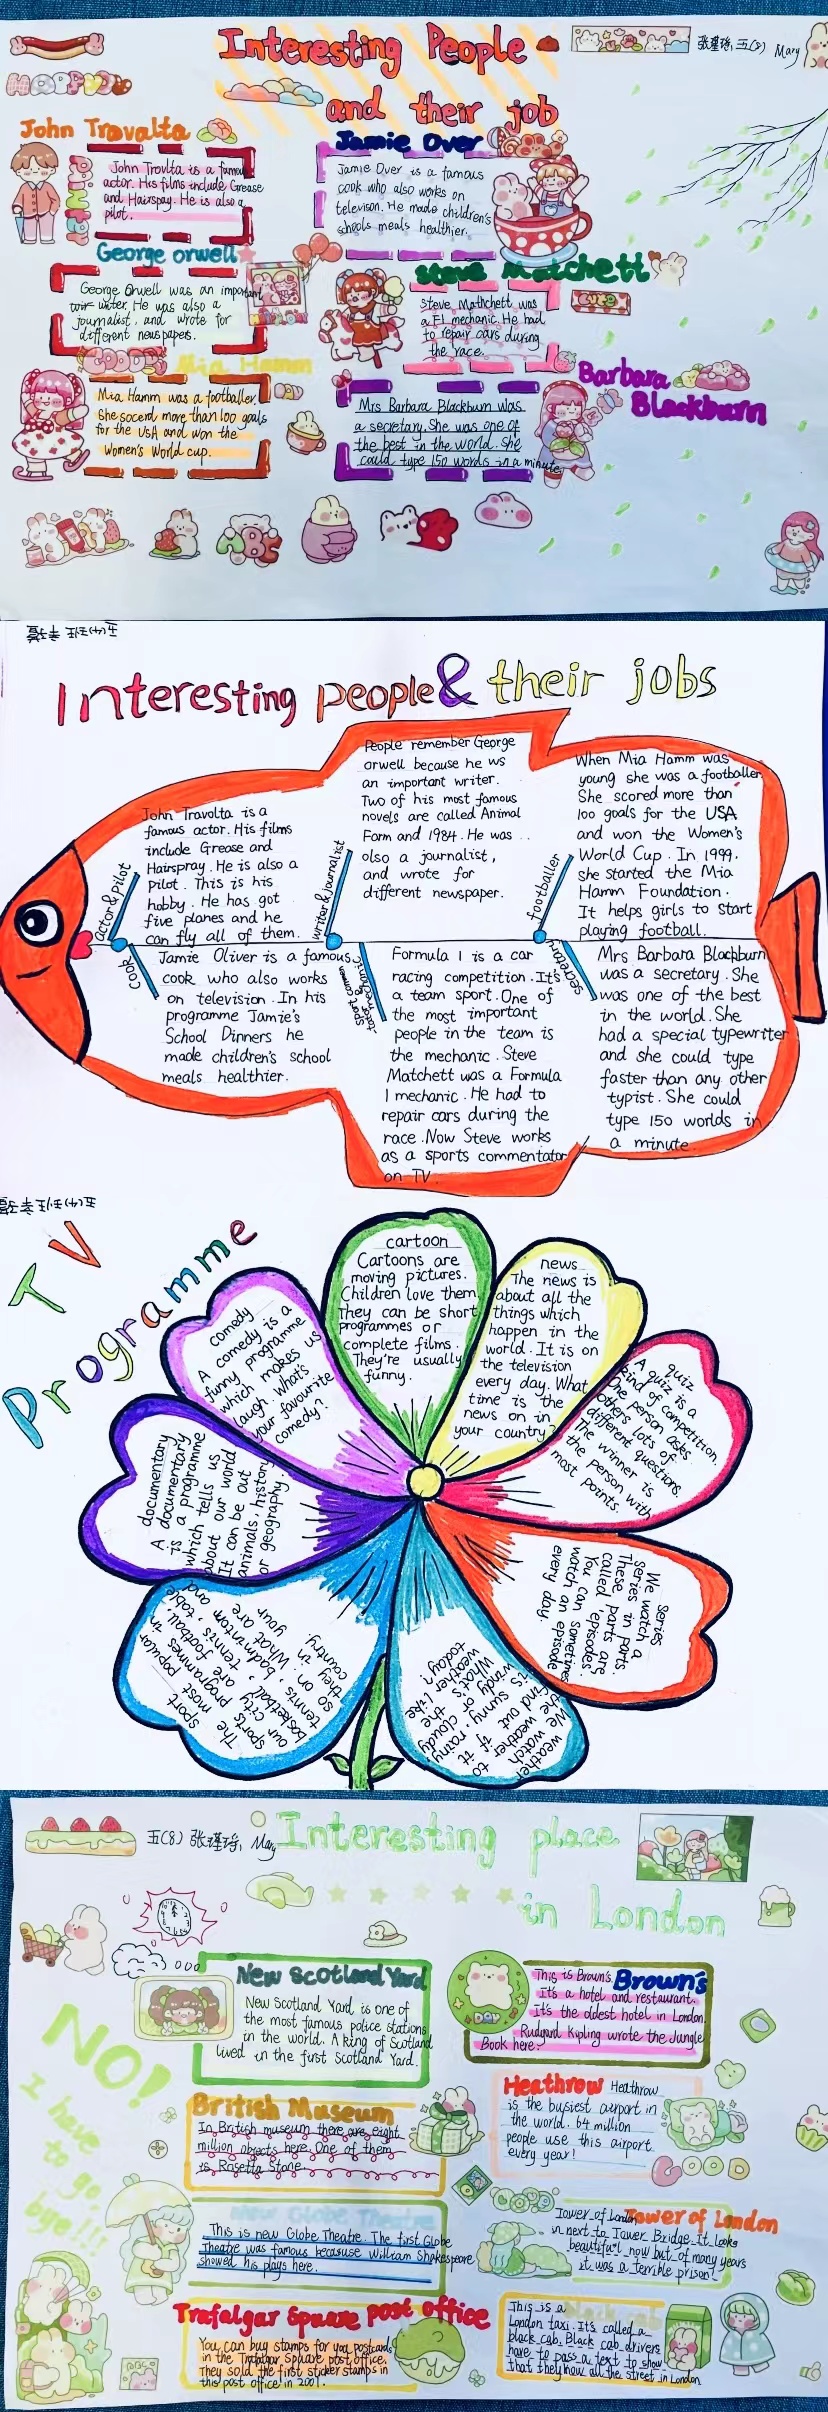 Interesting People
and their job
张瑾瑶, 五(8) Mary
HAPPY
John Travalta
John Trovlta is a famous
actor. His films include Grease
and Hairspay. He is also a
pilot.
Jamie Over
Jamie Over is a famous
cook who also works on
televison. He made children's
schools meals healthier.
George orwell
George Orwell was an important
writer. He was also a
journalist, and wrote for
different newspapers.
Steve Matchett
Steve Mathchett was
a F1 mechanic. He had
to repair cars during
the race.
CUTE
GOOD
Mia Hamm
Mia Hamm was a footballer.
She socerd more than 100 goals
for the USA and won the
Women's World cup.
Barbara
Blackburn
Mrs Barbara Blackburn was
a secretary. She was one of
the best in the world. She
could type 150 words in a minute
ABC
Interesting people & their jobs
actor & pilot
John Travolta is a
famous actor. His films
include Grease and
Hairspray. He is also a
pilot. This is his
hobby. He has got
five planes and he
can fly all of them.
writer & journalist
People remember George
orwell because he ws
an important writer.
Two of his most famous
novels are called Animal
Form and 1984. He was
olso a journalist,
and wrote for
different newspaper.
footballer
When Mia Hamm was
young she was a footballer.
She scored more than
100 goals for the USA
and won the Women's
World Cup. In 1999,
she started the Mia
Hamm Foundation.
It helps girls to start
playing football.
cook
Jamie Oliver is a famous
cook who also works
on television. In his
programme Jamie's
School Dinners he
made children's school
meals healthier.
mechanic &
sport commen
Formula 1 is a car
racing competition. It's
a team sport. One of
the most important
people in the team is
the mechanic. Steve
Matchett was a Formula
1 mechanic. He had to
repair cars during the
race. Now Steve works
as a sports commentator
on TV.
secretary
Mrs Barbara Blackburn
was a secretary. She
was one of the best
in the world. She
had a special typewriter
and she could type
faster than any other
typist. She could
type 150 worlds in
a minute.
TV
Programme
cartoon
Cartoons are
moving pictures.
Children love them.
They can be short
programmes or
complete films.
They're usually
funny.
news
The news is
about all the
things which
happen in the
world. It is on
the television
every day. What
time is the
news on in
your country?
comedy
A comedy is a
funny programme
which makes us
laugh. What's
your favourite
comedy?
quiz
A quiz is a
kind of competition.
One person asks
others lots of
different questions.
The winner is
the person with
most points.
documentary
A documentary
is a programme
which tells us
about our world
It can be out
animals, history
or geography.
series
We watch a
series in parts.
These parts are
called episodes.
You can sometimes
watch an episode
every day.
sport
The most popular
sports programmes in
our city are football,
basketball, tennis, table
tennis, badminton and
so on. What are
they in your
country.
weather
We watch
the weather to
find out if it
is sunny, rainy,
windy or cloudy.
What's the
weather like
today?
五(8) 张瑾瑶, Mary
Interesting place
in London
New Scotland Yard
New Scotland Yard is one of
the most famous police stations
in the world. A king of Scotland
lived in the first Scotland Yard.
Brown's
This is Brown's.
It's a hotel and restaurant.
It's the oldest hotel in London.
Rudyard Kipling wrote the Jungle
Book here.
DAY
NO!
I have
to go,
bye!!!
British Museum
In British museum there are eight
million objects here. One of them
is Rosetta Stone
Heathrow
Heathrow
is the busiest airport in
the world. 64 million
people use this airport
every year!
GOOD
This is new Globe Theatre. The first Globe
Theatre was famous becasuse William Shakespeare
showed his plays here.
Tower of London
Tower of London
in next to Tower Bridge. It looks
beautiful now but of many years
it was a terrible prison!
Trafalgar Spuare post office
You can buy stamps for you postcards
in the Trafalgar Spuare post office.
They sold the first sticker stamps in
this post office in 2001.
This is a
London taxi. It's called a
black cab. Black cab drivers
have to pass a text to show
that they know all the street in London